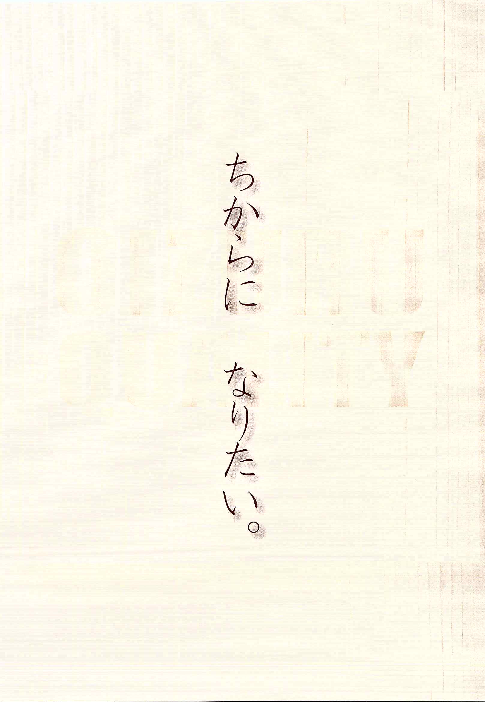 ちからに　なりたい。